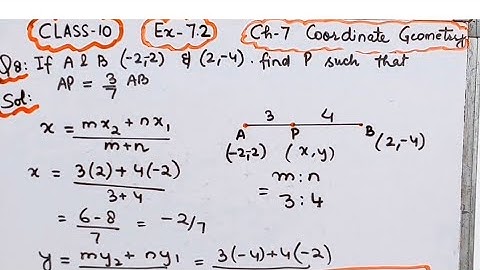 CLASS-10 Ex-7.2 Ch-7 Coordinate Geometry
Q8: If A & B (-2,-2) & (2,-4). find P such that
AP = 3/7 AB
Sol:
x = mx₂ + nx₁ / m+n
3 4
A P B (2,-4)
(-2,-2) (x,y)
x = 3(2) + 4(-2) / 3+4
m:n
= 3:4
= 6-8 / 7 = -2/7
y = my₂ + ny₁ = 3(-4)+4(-2)